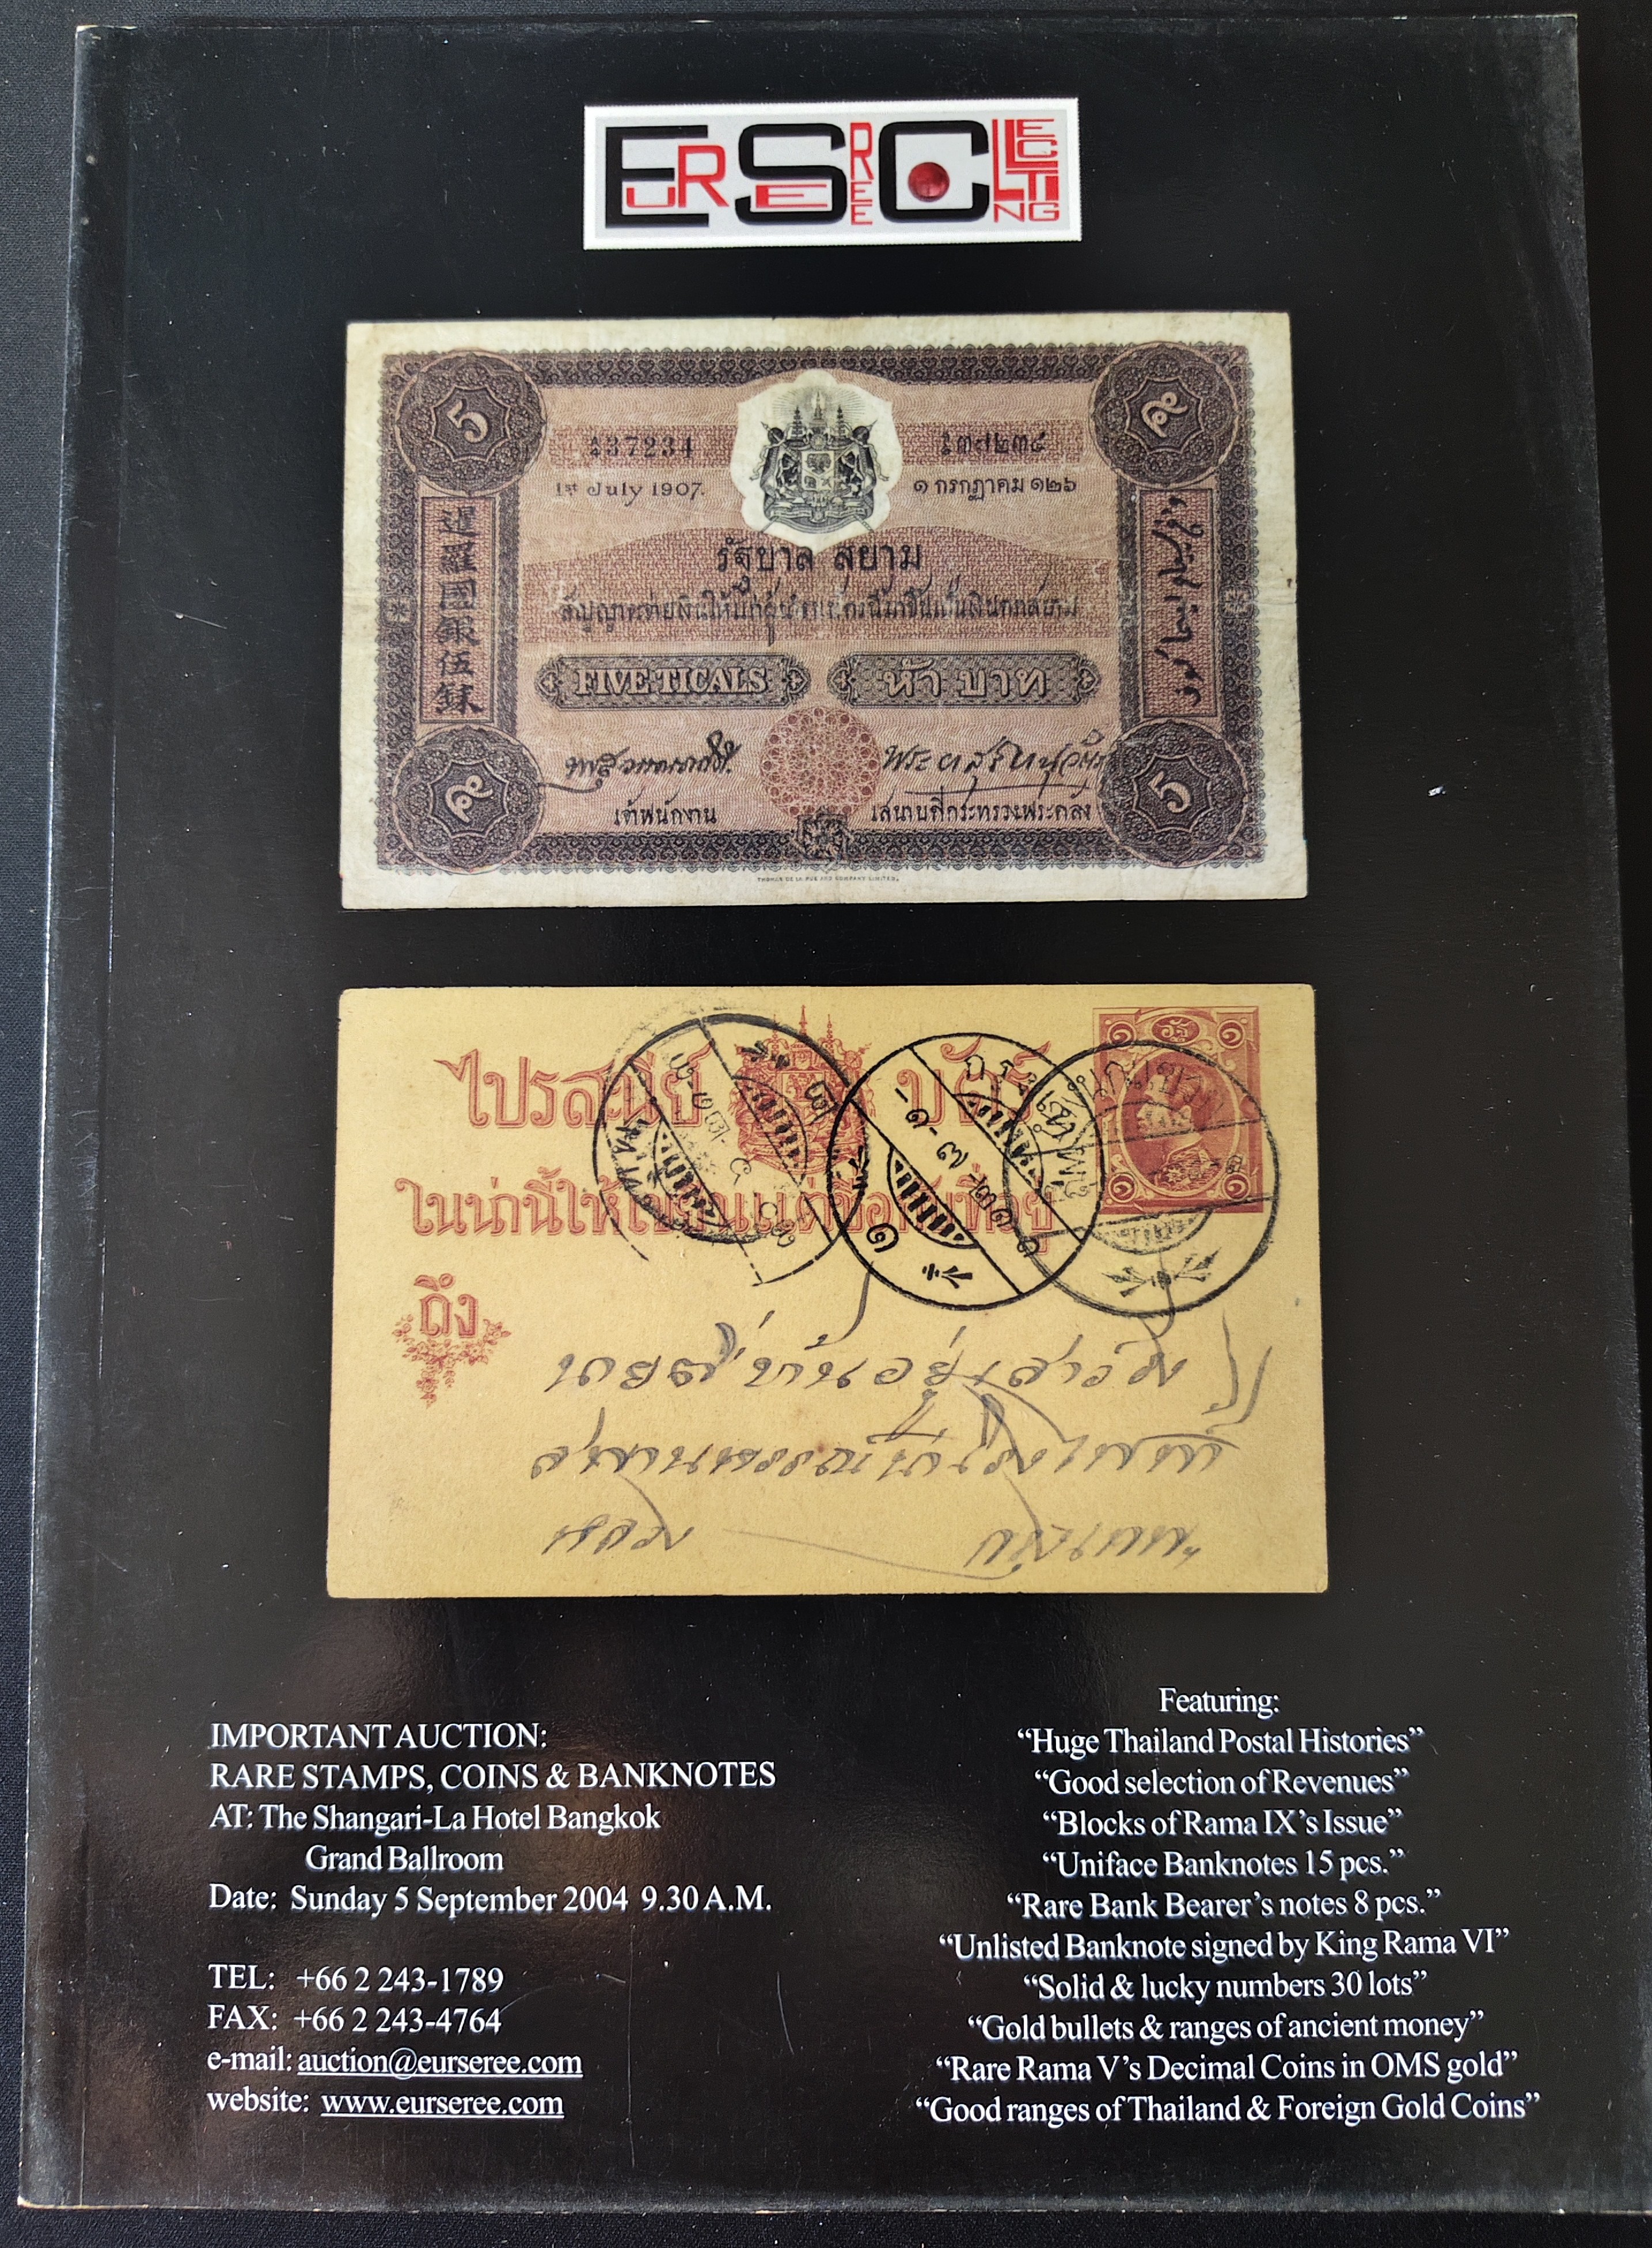 EURSEREE COLLECTING
5
๕
37234
๓๗๒๓๔
1st July 1907.
๑ กรกฎาคม ๑๒๖
暹羅國銀伍銖
รัฐบาล สยาม
FIVE TICALS
ห้า บาท
เจ้าพนักงาน
เสนาบดีกระทรวงพระคลัง
๕
5
THOMAS DE LA RUE AND COMPANY LIMITED.
ไปรสนีย์ บัตร์
ในน่านี้ให้เขียนแต่ชื่อกับที่อยู่
ถึง
IMPORTANT AUCTION:
RARE STAMPS, COINS & BANKNOTES
AT: The Shangari-La Hotel Bangkok
Grand Ballroom
Date: Sunday 5 September 2004 9.30 A.M.
TEL: +66 2 243-1789
FAX: +66 2 243-4764
e-mail: auction@eurseree.com
website: www.eurseree.com
Featuring:
“Huge Thailand Postal Histories”
“Good selection of Revenues”
“Blocks of Rama IX’s Issue”
“Uniface Banknotes 15 pcs.”
“Rare Bank Bearer’s notes 8 pcs.”
“Unlisted Banknote signed by King Rama VI”
“Solid & lucky numbers 30 lots”
“Gold bullets & ranges of ancient money”
“Rare Rama V’s Decimal Coins in OMS gold”
“Good ranges of Thailand & Foreign Gold Coins”